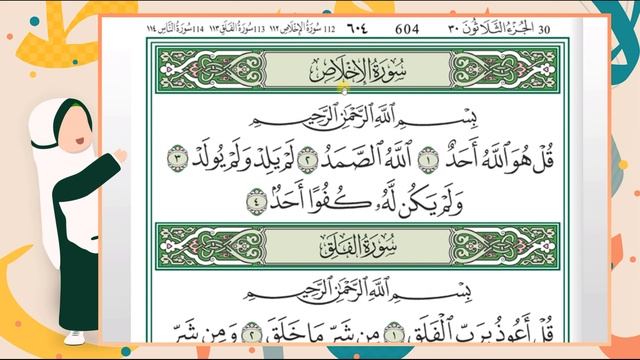 30 الجزء الثلاثون ٣٠ 604 ٦٠٤ 112 سورة الإخلاص ١١٢ 113 سورة الفلق ١١٣ 114 سورة الناس ١١٤
سُورَةُ الإِخْلَاصِ
بِسْمِ اللَّهِ الرَّحْمَٰنِ الرَّحِيمِ
قُلْ هُوَ اللَّهُ أَحَدٌ ١ اللَّهُ الصَّمَدُ ٢ لَمْ يَلِدْ وَلَمْ يُولَدْ ٣
وَلَمْ يَكُن لَّهُۥ كُفُوًا أَحَدٌۢ ٤
سُورَةُ الفَلَقِ
بِسْمِ اللَّهِ الرَّحْمَٰنِ الرَّحِيمِ
قُلْ أَعُوذُ بِرَبِّ الْفَلَقِ ١ مِن شَرِّ مَا خَلَقَ ٢ وَمِن شَرِّ